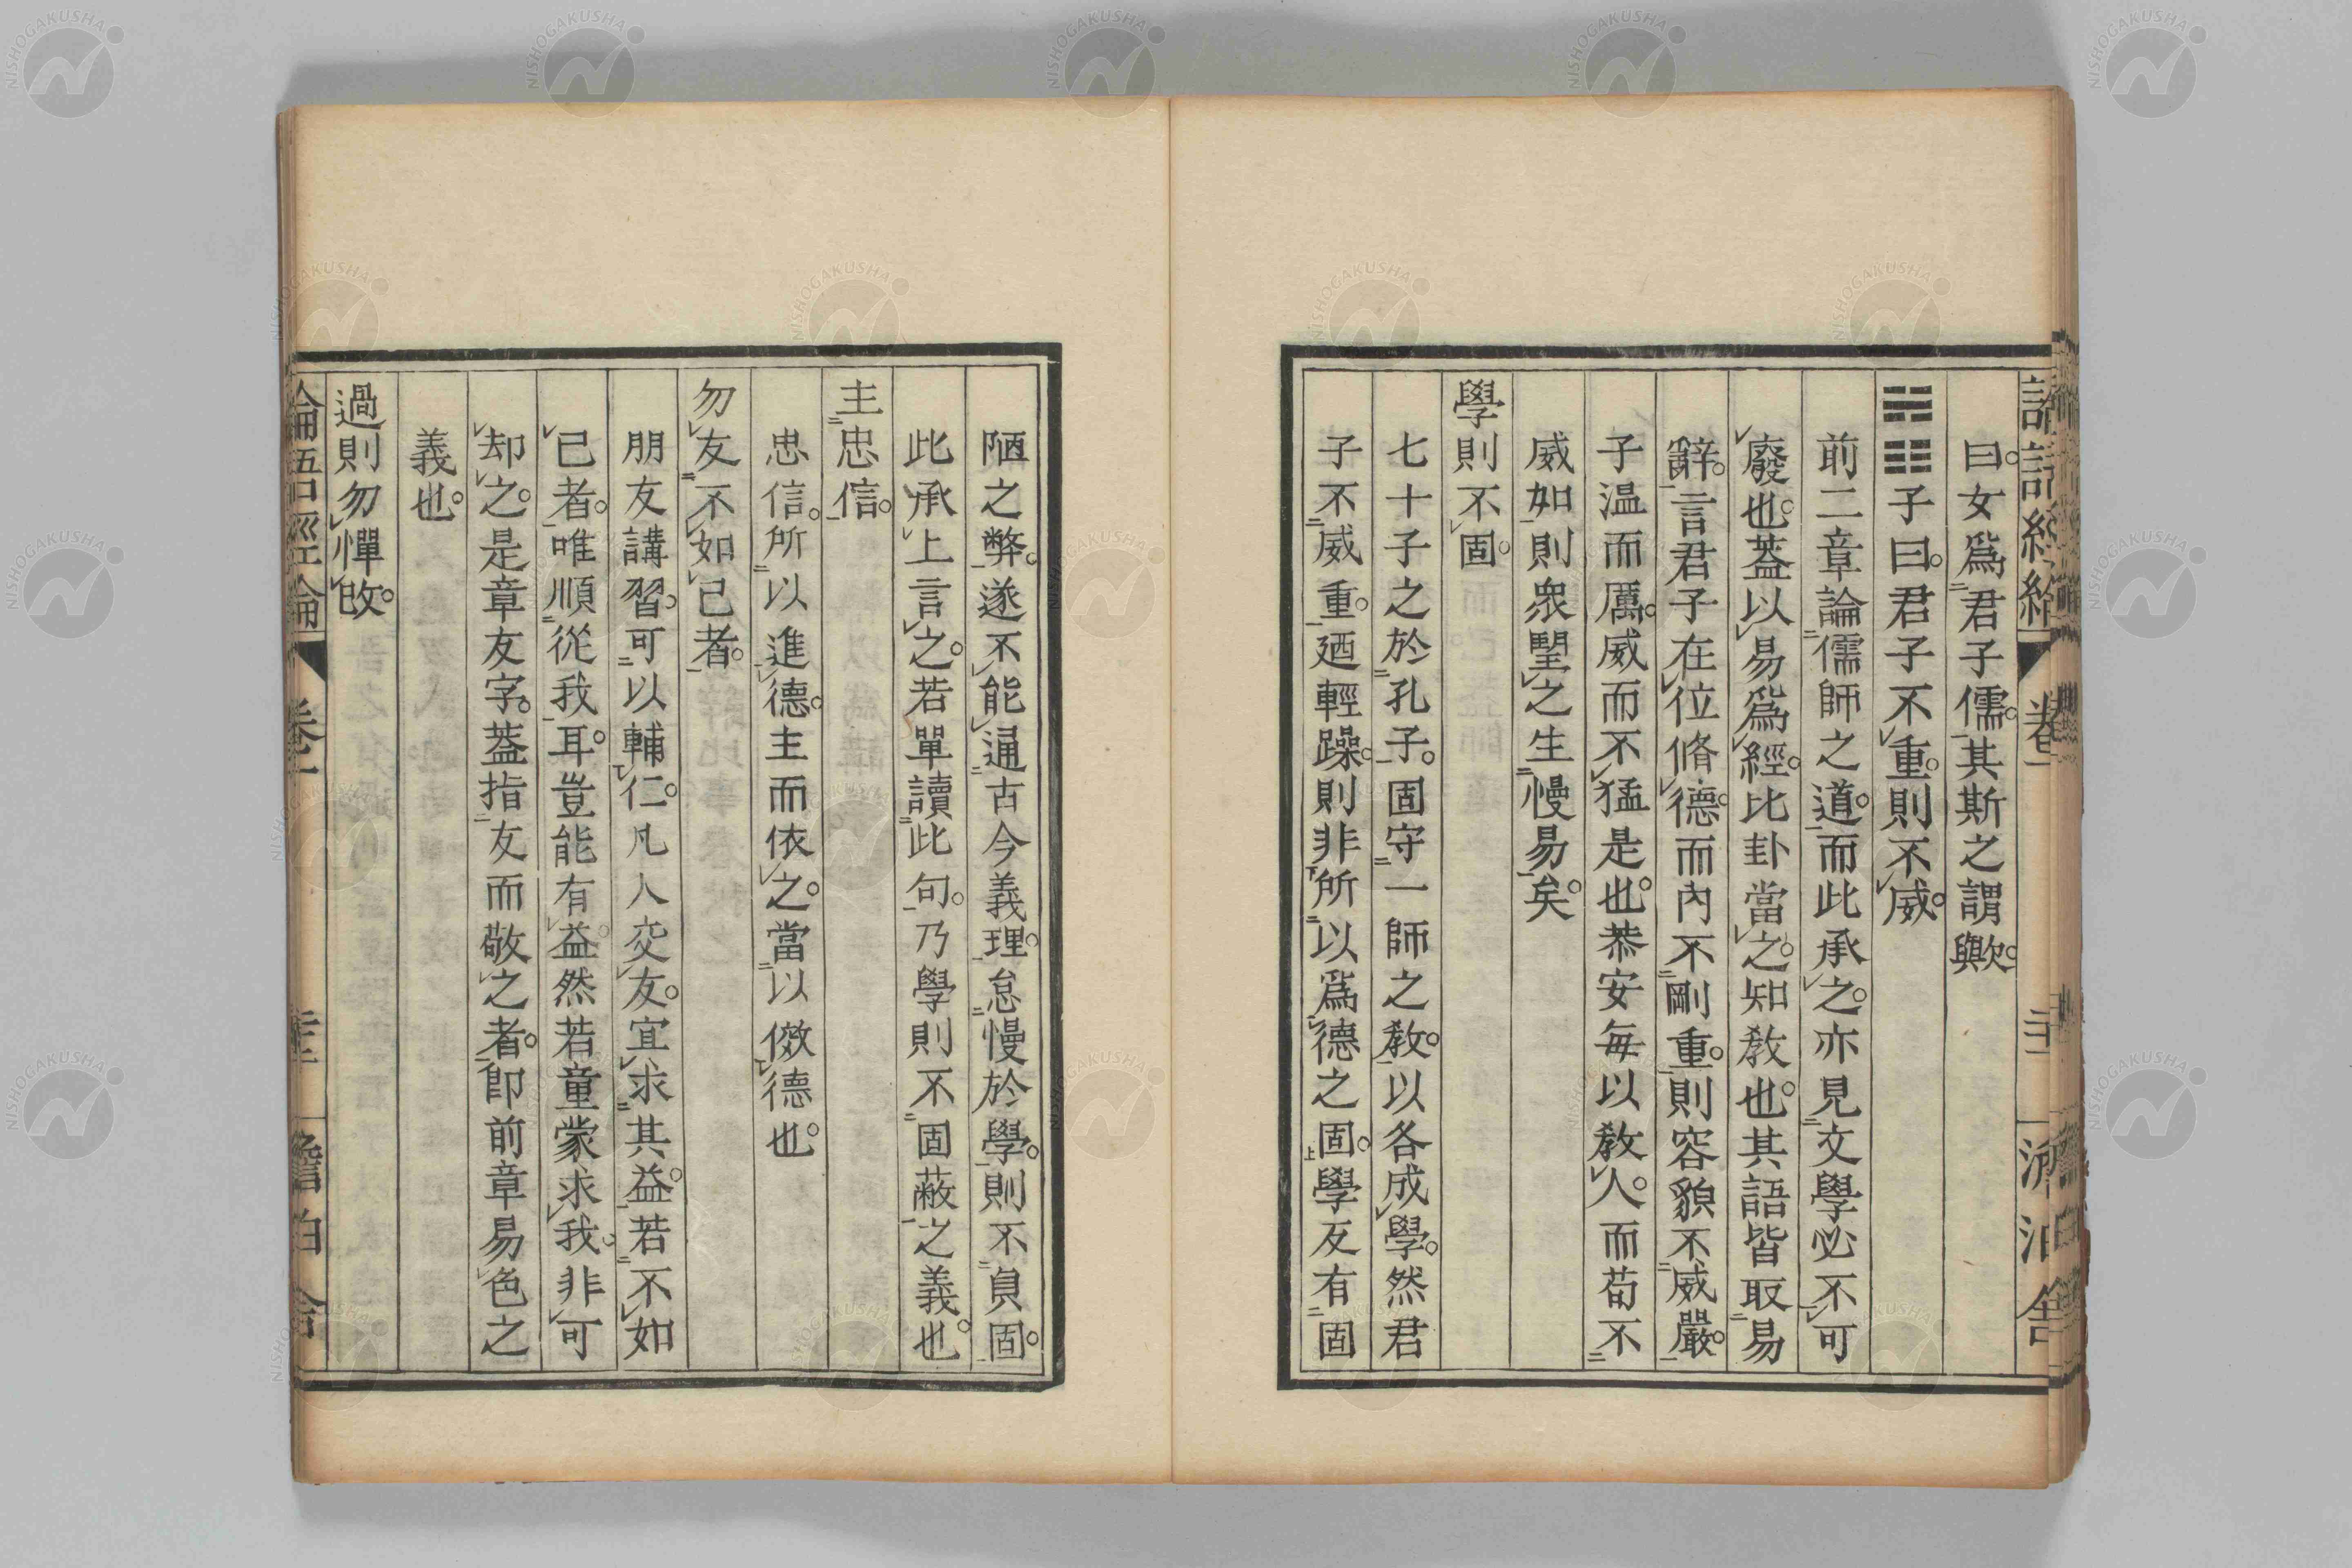 曰。女爲君子儒。其斯之謂歟。
䷴ ䷁子曰。君子不重。則不威。
前二章論儒師之道。而此承之。亦見文學必不可
廢也。葢以易爲經。比卦當之。知教也。其語皆取易
辭。言君子在位脩德。而內不剛重。則容貌不威嚴。
子溫而厲。威而不猛是也。恭安每以教人。而苟不
威如。則衆朢之生慢易矣。
學則不固。
七十子之於孔子。固守一師之教。以各成學。然君
子不威重。廼輕躁。則非所以爲德之固。學反有固
陋之弊。遂不能通古今義理。怠慢於學。則不貞固。
此承上言之。若單讀此句。乃學則不固蔽之義也。
主忠信。
忠信。所以進德。主而依之。當以傚德也。
勿友不如已者。
朋友講習。可以輔仁。凡人交友。宜求其益。若不如
已者。唯順從我耳。豈能有益。然若童蒙求我。非可
却之。是章友字。葢指友而敬之者。卽前章易色之
義也。
過則勿憚改。
論語經論 卷一
NISHOGAKUSHA